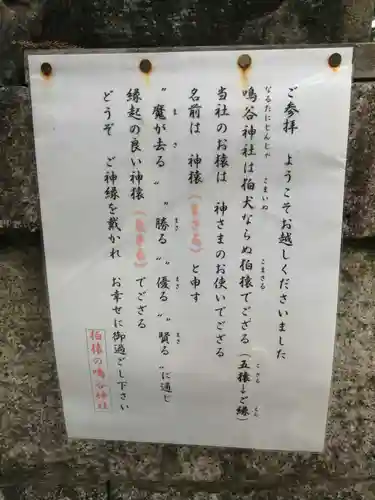 ご参拝　ようこそお越しくださいました
なるたにじんじゃ　こまいぬ　こまさる　ごさる　ごえん
鳴谷神社は狛犬ならぬ狛猿でござる（五猿→ご縁）
当社のお猿は　神さまのお使いでござる
名前は　神猿（まさる）と申す
まさ　まさ　まさ　まさ
〝魔が去る〟〝勝る〟〝優る〟〝賢る〟に通じ
縁起の良い神猿（まさる）でござる
どうぞ　ご神縁を戴かれ　お幸せに御過ごし下さい
狛猿の鳴谷神社